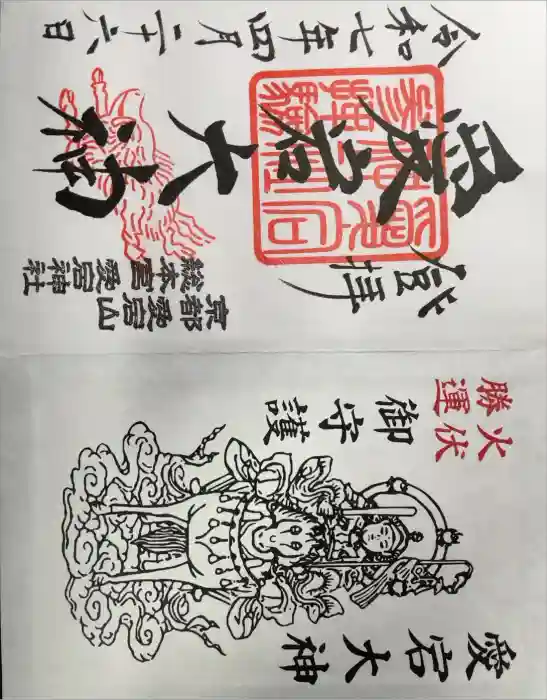 愛宕大神
火伏
勝運
御守護
登拝
京都愛宕山
総本宮愛宕神社
愛宕大神
令和七年四月二十六日